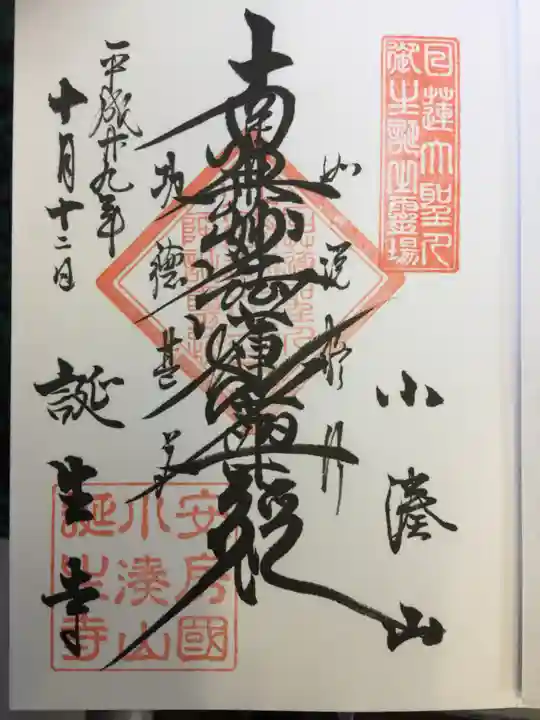 日蓮大聖人
御生誕之霊場
小湊山
如説修行
南無妙法蓮華経
功徳甚多
平成十九年
十月十二日
誕生寺
安房國
小湊山
誕生寺